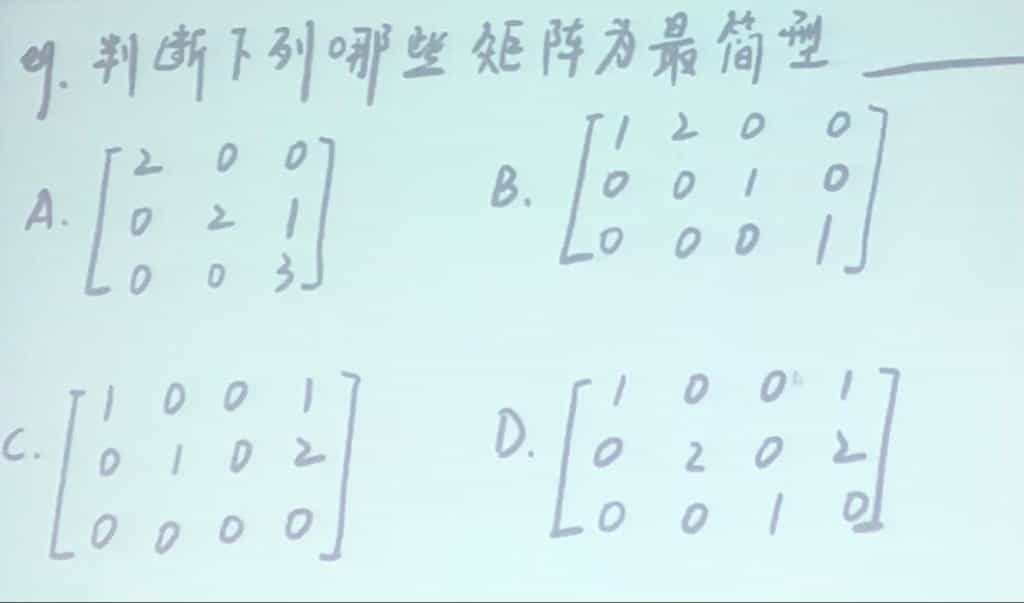 eg. 判断下列哪些矩阵为最简型 ______
A. [2 0 0
0 2 1
0 0 3]
B. [1 2 0 0
0 0 1 0
0 0 0 1]
C. [1 0 0 1
0 1 0 2
0 0 0 0]
D. [1 0 0 1
0 2 0 2
0 0 1 0]